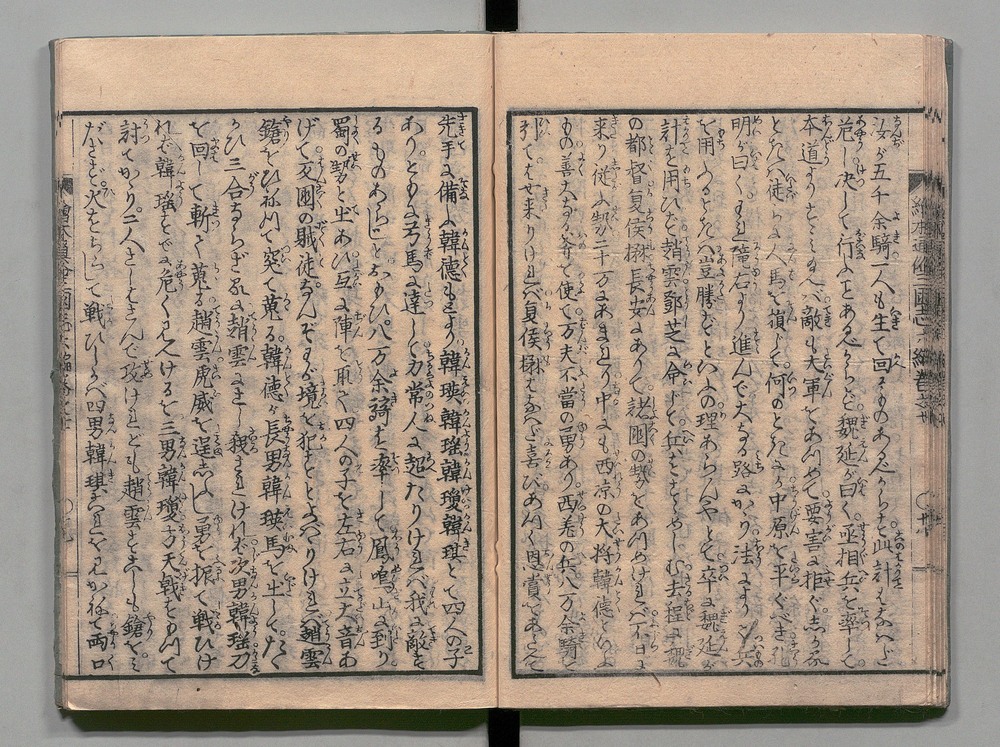 汝が五千余騎一人も生て回るものあるべからず此計はなはだ
危し决して行ふことあるべからず魏延が曰く丞相兵を率して
本道よりすゝみ玉へバ敵も大軍をあつめて要害に拒ぐべし
とき玉ハ徒に人馬を損じて何のときにか中原を平ぐべき孔
明が曰くわれ隴右より進んで大なる路にかゝり法によつて兵
を用ふるときハ豈勝ざるといふの理あらんやとて卒に魏延が
計を用ひず趙雲鄧芝に命じて兵をすゝめしむ去程に魏
の都督夏侯楙長安にありて諸国の勢をあつめけれバ不日に
来り従ふ勢二十万にあまれり中にも西凉の大将韓徳といふ
もの善大なる斧を使て万夫不當の勇あり西羌の兵八万余騎を
引てはせ来りけれバ夏侯楙はなはだ喜びあつく恩賞をあたへて
先手に備ふ韓徳もとより韓瑛韓瑶韓瓊韓琪とて四人の子
ありともに弓馬に達して力常人に超たりけれバ我に敵す
るものあらじとおもひ八万余騎を率して鳳鳴山に到り
蜀の勢と出あひ互に陣を取て四人の子を左右に立大音あ
げて反国の賊徒なんぞわが境を犯すとよバハりけれバ趙雲
鎗をひねつて突て蒐る韓徳が長男韓瑛馬を出してたゝ
かひ三合ならざるに趙雲にさし殺されけれバ次男韓瑶刀
を回して斬て蒐る趙雲虎威を逞ふし勇を振て戦ひけ
れバ韓瑶すでに危くみへけるを三男韓瓊方天戟をもつて
討てかゝり二人さしはさんで攻けれども趙雲すこしも鎗をミ
ださず火をちらして戦ひしかバ四男韓琪これを見かねて両口